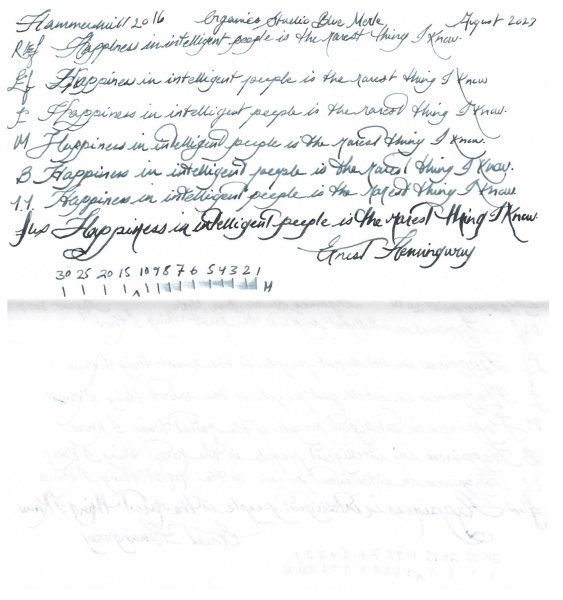 Hammermill 2016 Organics Studio Blue Merle August 2023
REF Happiness in intelligent people is the rarest thing I know.
Ef Happiness in intelligent people is the rarest thing I know
F Happiness in intelligent people is the rarest thing I know.
M Happiness in intelligent people is the rarest thing I know.
B Happiness in intelligent people is the rarest thing I know.
1.1 Happiness in intelligent people is the rarest thing I know
Happiness in intelligent people is the rarest thing I know.
Ernest Hemingway
30 25 20 15 10 9 8 7 6 5 4 3 2 1
H